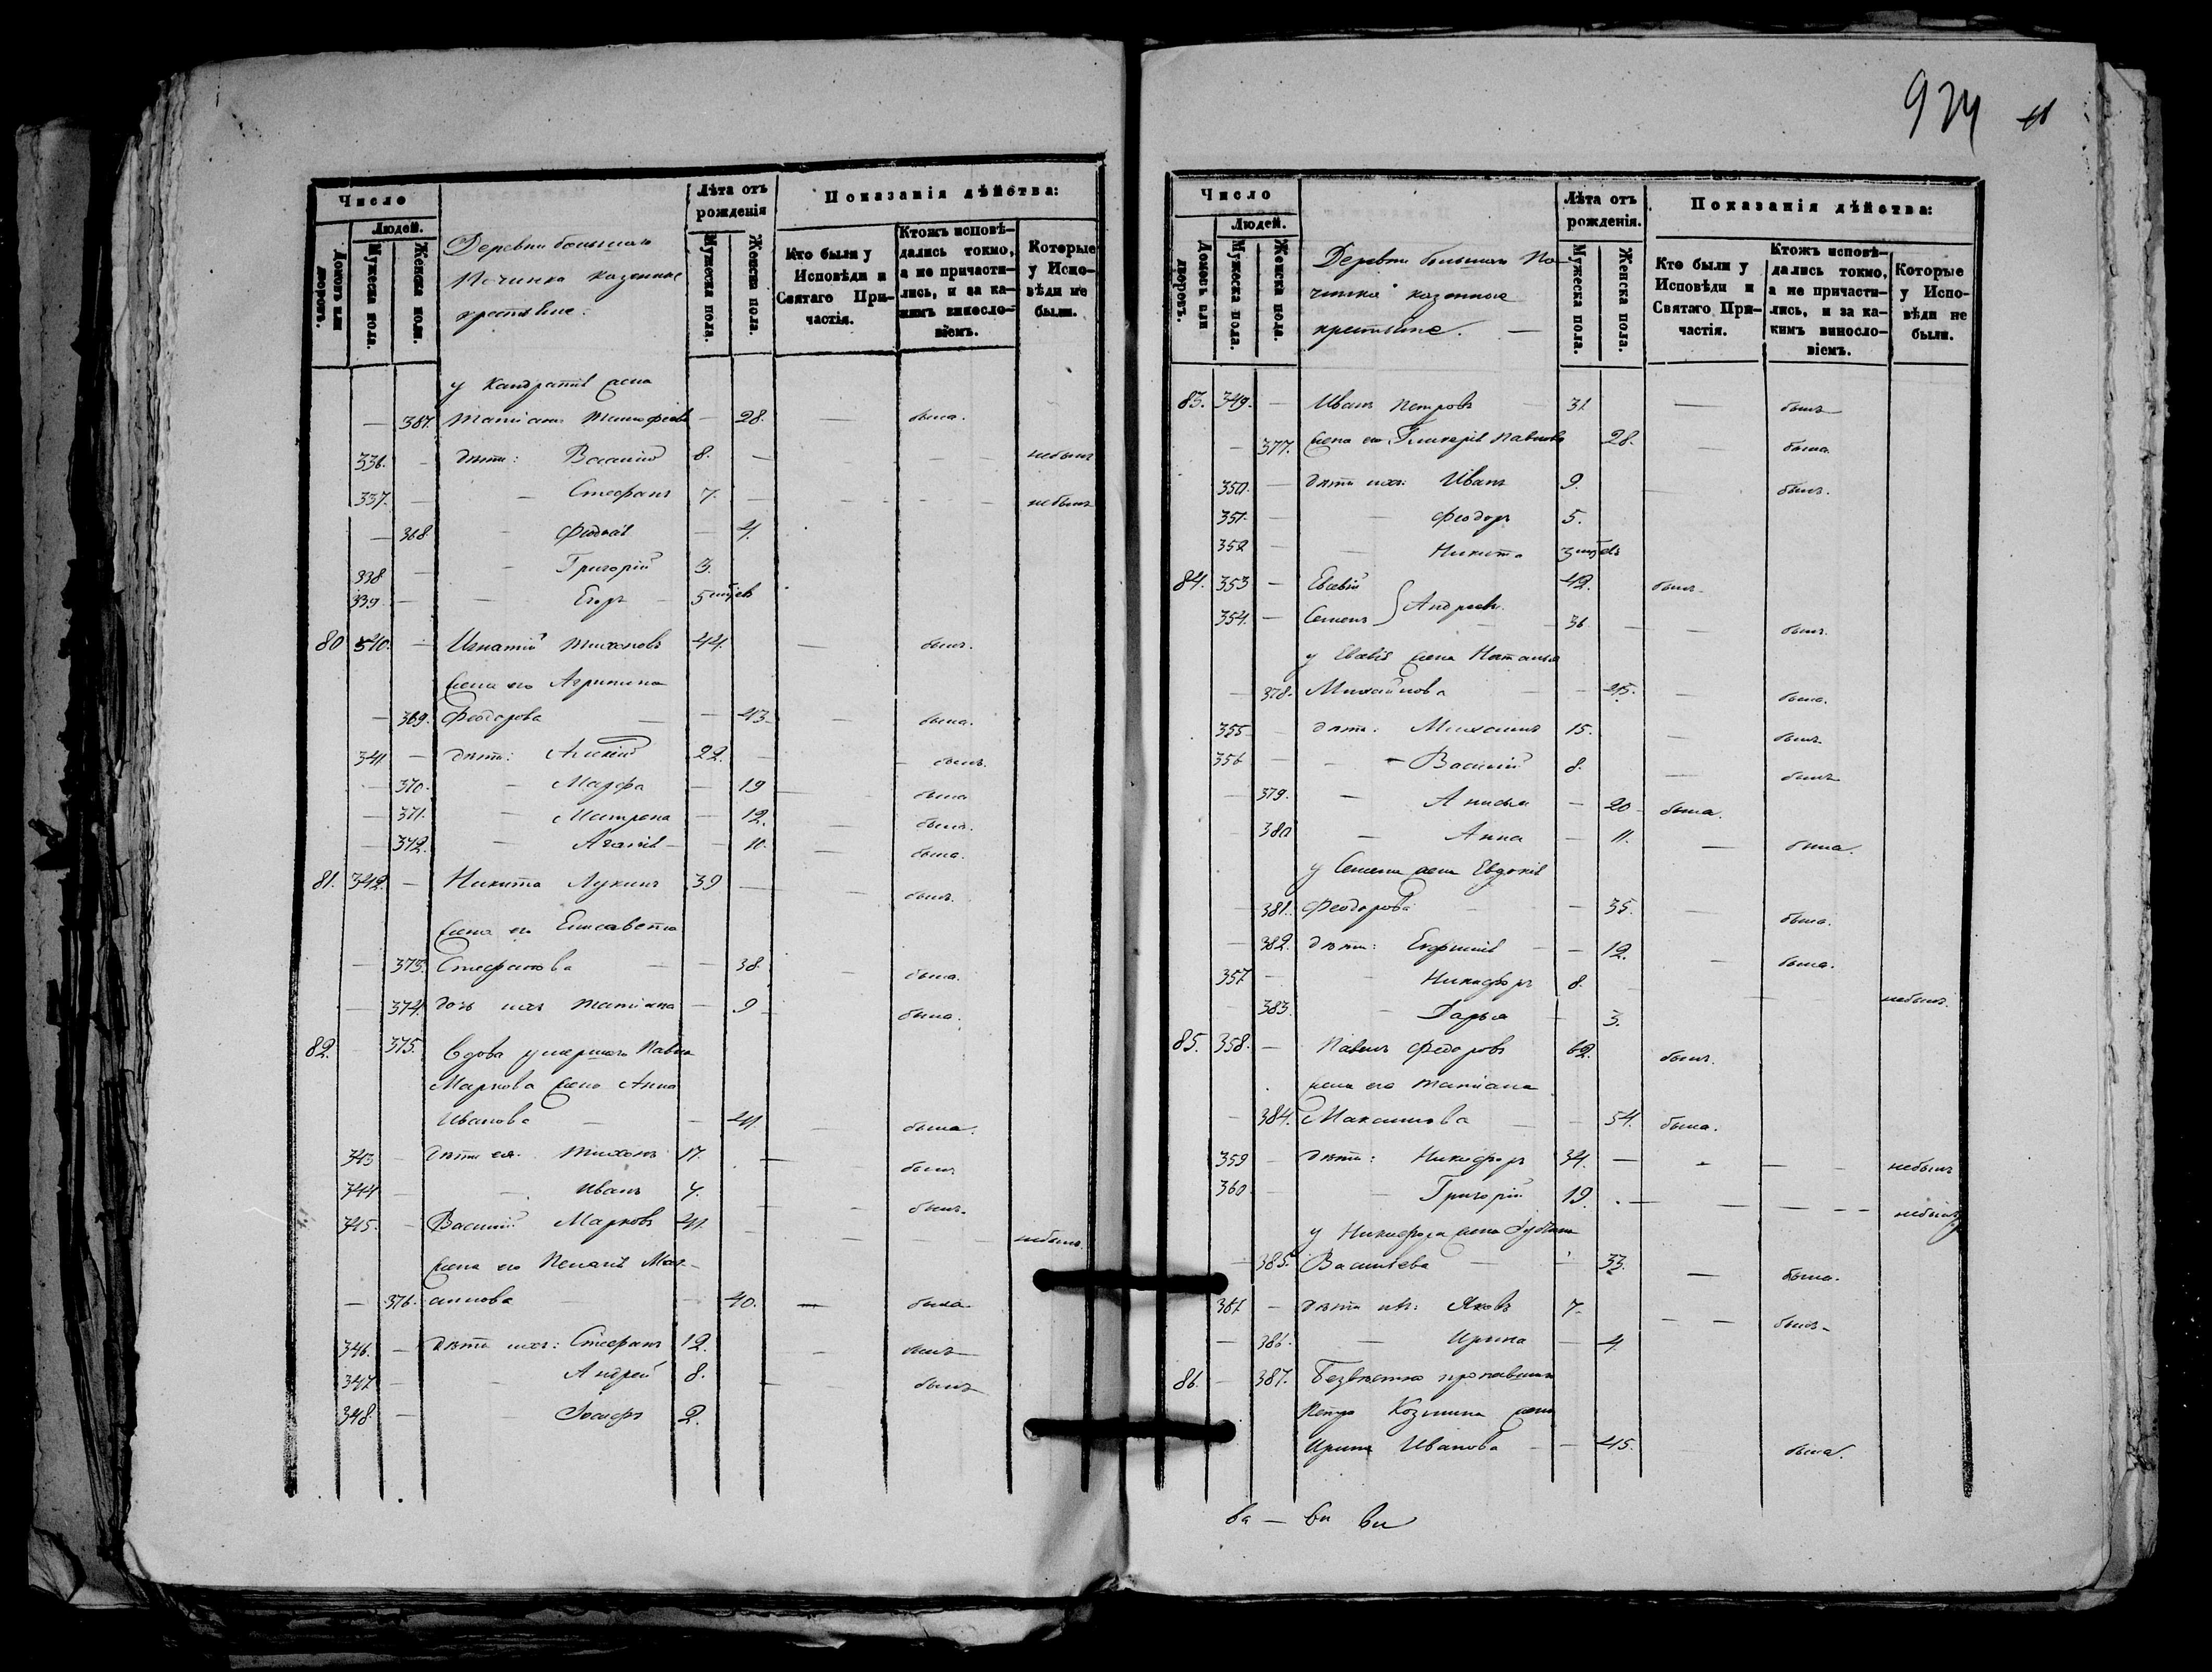 924
Число
Людей.
Домовъ или дворовъ.
Мужеска пола.
Женска пола.
Деревни большаго
Починка казенные
крестьяне.
Лѣта отъ рожденія
Мужеска пола.
Женска пола.
Показанія дѣйства:
Кто были у Исповѣди и Святаго Причастія.
Ктожъ исповѣдались токмо, а не причастились, и за какимъ винословіемъ.
Которые у Исповѣди не были.
у Кандратія жена
— 367. Татіана Тимофеева — 28. — была.
336. — дѣти: Василій 8. — небылъ
337. — — Стефанъ 7. — небылъ
— 368 — Феодосія — 4.
338 — — Григорій 3.
339 — — Егоръ 5
80 340. — Игнатій Тихоновъ 44. — былъ.
жена его Агрипина
— 369. Феодорова — 43. — была.
341 — дѣти: Алексій 22. — былъ.
— 370. — Марфа — 19 — была
— 371. — Матрона — 12. — была.
— 372. — Агафія — 10. — была.
81. 342. — Никита Лукинъ 39 — былъ.
жена его Елисавета
— 373. Стефанова — 38. — была.
— 374. дочь ихъ Татіана — 9 — была.
82. — 375. Вдова умершаго Павла
Маркова жена Анна
Иванова — 41. — была.
343 — дѣти ея: Тихонъ 17. — былъ
344 — — Иванъ 7. — былъ.
345. — Василій Марковъ 41. — небылъ.
жена его Пелагія Мак-
— 376. симова — 40. — была
346. — дѣти ихъ: Стефанъ 12. — былъ
347 — Андрей 8. — былъ
348. — — Іосифъ 2.
Число
Людей.
Домовъ или дворовъ.
Мужеска пола.
Женска пола.
Деревни большаго По-
чинка казенные
крестьяне. —
Лѣта отъ рожденія.
Мужеска пола.
Женска пола.
Показанія дѣйства:
Кто были у Исповѣди и Святаго Причастія.
Ктожъ исповѣдались токмо, а не причастились, и за какимъ винословіемъ.
Которые у Исповѣди не были.
83. 349. — Иванъ Петровъ — 31 — былъ
— 377. жена его Гликерія Павлова 28. — была.
350. — дѣти ихъ: Иванъ 9. — былъ.
351. — — Феодоръ 5.
352 — — Никита 3
84. 353 — Евсевій 42. былъ
354. — Семенъ } Андреевы. 36 — былъ.
у Евсевія жена Наталья
— 378. Михайлова — 45. — была.
355 — дѣти: Михаилъ 15. — былъ.
356 — — Василій 8. — былъ
— 379. — Анисья — 20 — была.
380 — Анна — 11. — была.
у Семена жена Евдокія
— 381. Феодорова — 35. — была.
— 382. дѣти: Евфимія — 12. — была.
357 — Никифоръ 8. — небылъ.
— 383. — Дарья — 3.
85. 358. — Павелъ Федоровъ 62. былъ.
жена его Татіана
— 384. Максимова — 54. была.
359 — дѣти: Никифоръ 34. — небылъ
360 — — Григорій 19. — небылъ
у Никифора жена
— 385. Василіева — 33. — была.
361 — дѣти ихъ: Яковъ 7. — былъ
— 386. — Ирина — 4
86. — 387. Безвѣстно пропавшаго
Петра Козмина жена
Ирина Иванова — 45. — была.